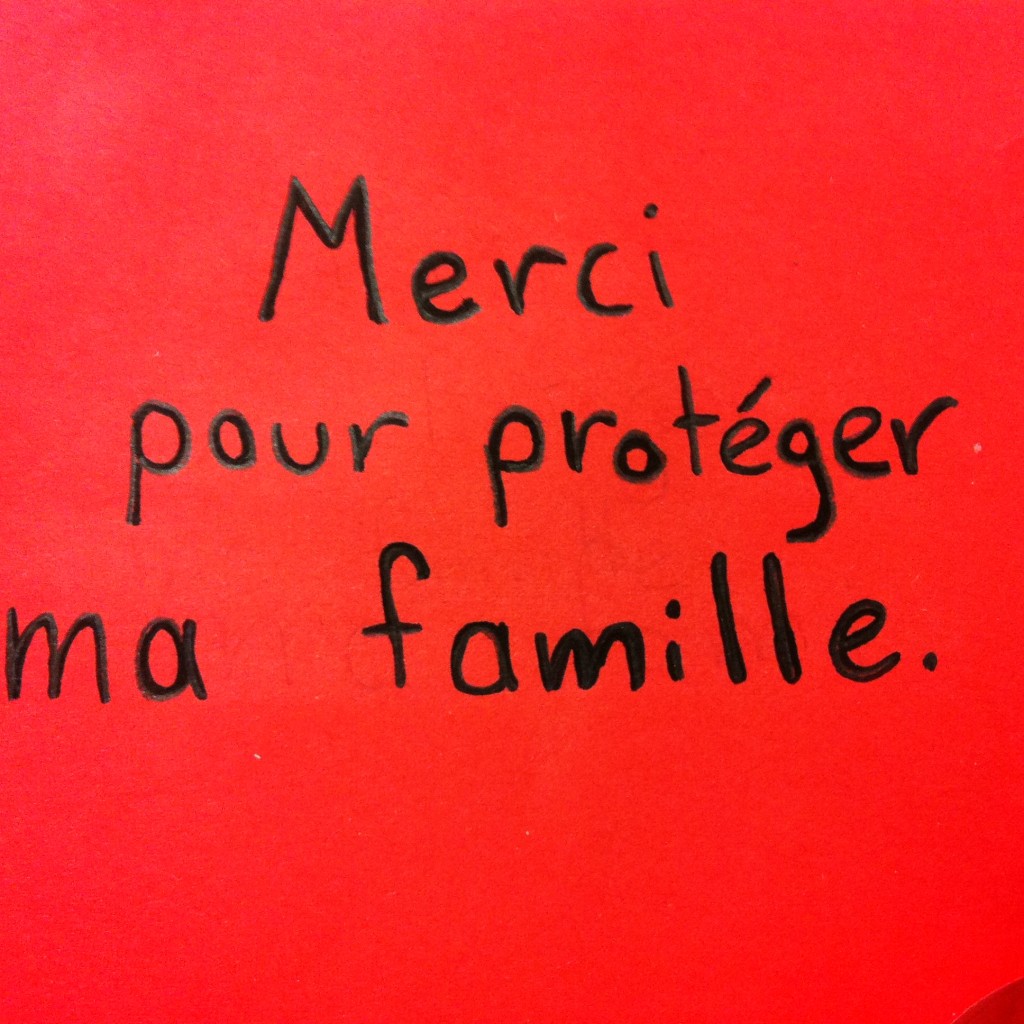 Merci
pour protéger
ma famille.